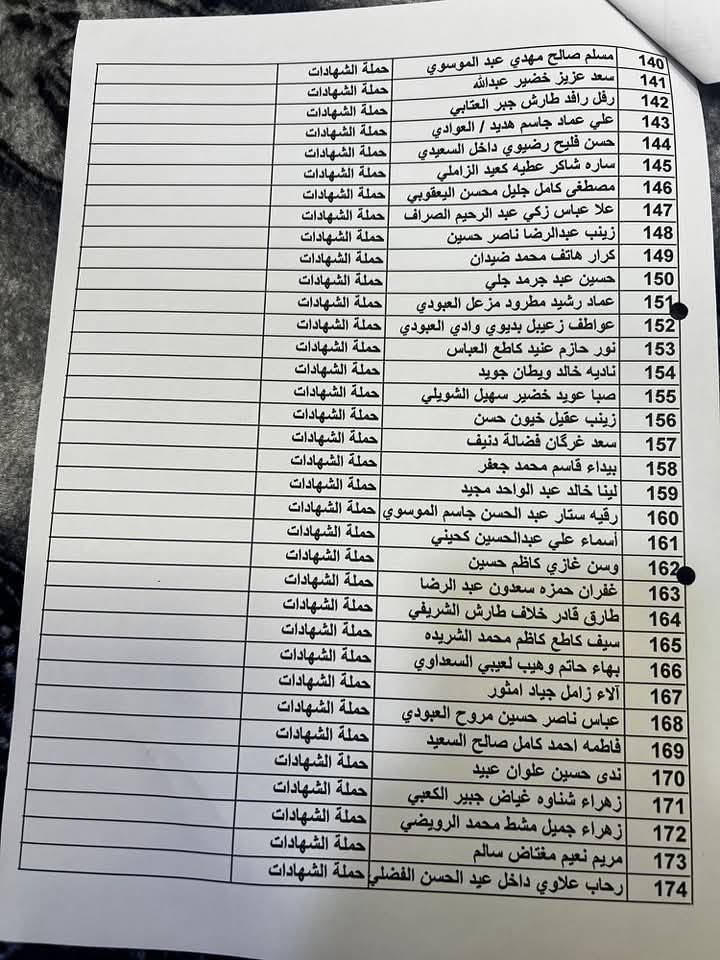 140 مسلم صالح مهدي عبد الموسوي حملة الشهادات
141 سعد عزيز خضير عبدالله حملة الشهادات
142 رفل رافد طارش جبر العتابي حملة الشهادات
143 علي عماد جاسم هديد / العوادي حملة الشهادات
144 حسن فليح رضيوي داخل السعيدي حملة الشهادات
145 ساره شاكر عطيه كعيد الزاملي حملة الشهادات
146 مصطفى كامل جليل محسن اليعقوبي حملة الشهادات
147 علا عباس زكي عبد الرحيم الصراف حملة الشهادات
148 زينب عبدالرضا ناصر حسين حملة الشهادات
149 كرار هاتف محمد ضيدان حملة الشهادات
150 حسين عبد جرمد جلي حملة الشهادات
151 عماد رشيد مطرود مزعل العبودي حملة الشهادات
152 عواطف زعيبل بديوي وادي العبودي حملة الشهادات
153 نور حازم عنيد كاطع العباس حملة الشهادات
154 ناديه خالد ويطان جويد حملة الشهادات
155 صبا عويد خضير سهيل الشويلي حملة الشهادات
156 زينب عقيل خيون حسن حملة الشهادات
157 سعد غرگان فضالة دنيف حملة الشهادات
158 بيداء قاسم محمد جعفر حملة الشهادات
159 لينا خالد عبد الواحد مجيد حملة الشهادات
160 رقيه ستار عبد الحسن جاسم الموسوي حملة الشهادات
161 أسماء علي عبدالحسين كحيني حملة الشهادات
162 وسن غازي كاظم حسين حملة الشهادات
163 غفران حمزه سعدون عبد الرضا حملة الشهادات
164 طارق قادر خلاف طارش الشريفي حملة الشهادات
165 سيف كاطع كاظم محمد الشريده حملة الشهادات
166 بهاء حاتم وهيب لعيبي السعداوي حملة الشهادات
167 آلاء زامل جياد امثور حملة الشهادات
168 عباس ناصر حسين مروح العبودي حملة الشهادات
169 فاطمه احمد كامل صالح السعيد حملة الشهادات
170 ندى حسين علوان عبيد حملة الشهادات
171 زهراء شناوه غياض جبير الكعبي حملة الشهادات
172 زهراء جميل مشط محمد الرويضي حملة الشهادات
173 مريم نعيم مغتاض سالم حملة الشهادات
174 رحاب علاوي داخل عيد الحسن الفضلي حملة الشهادات